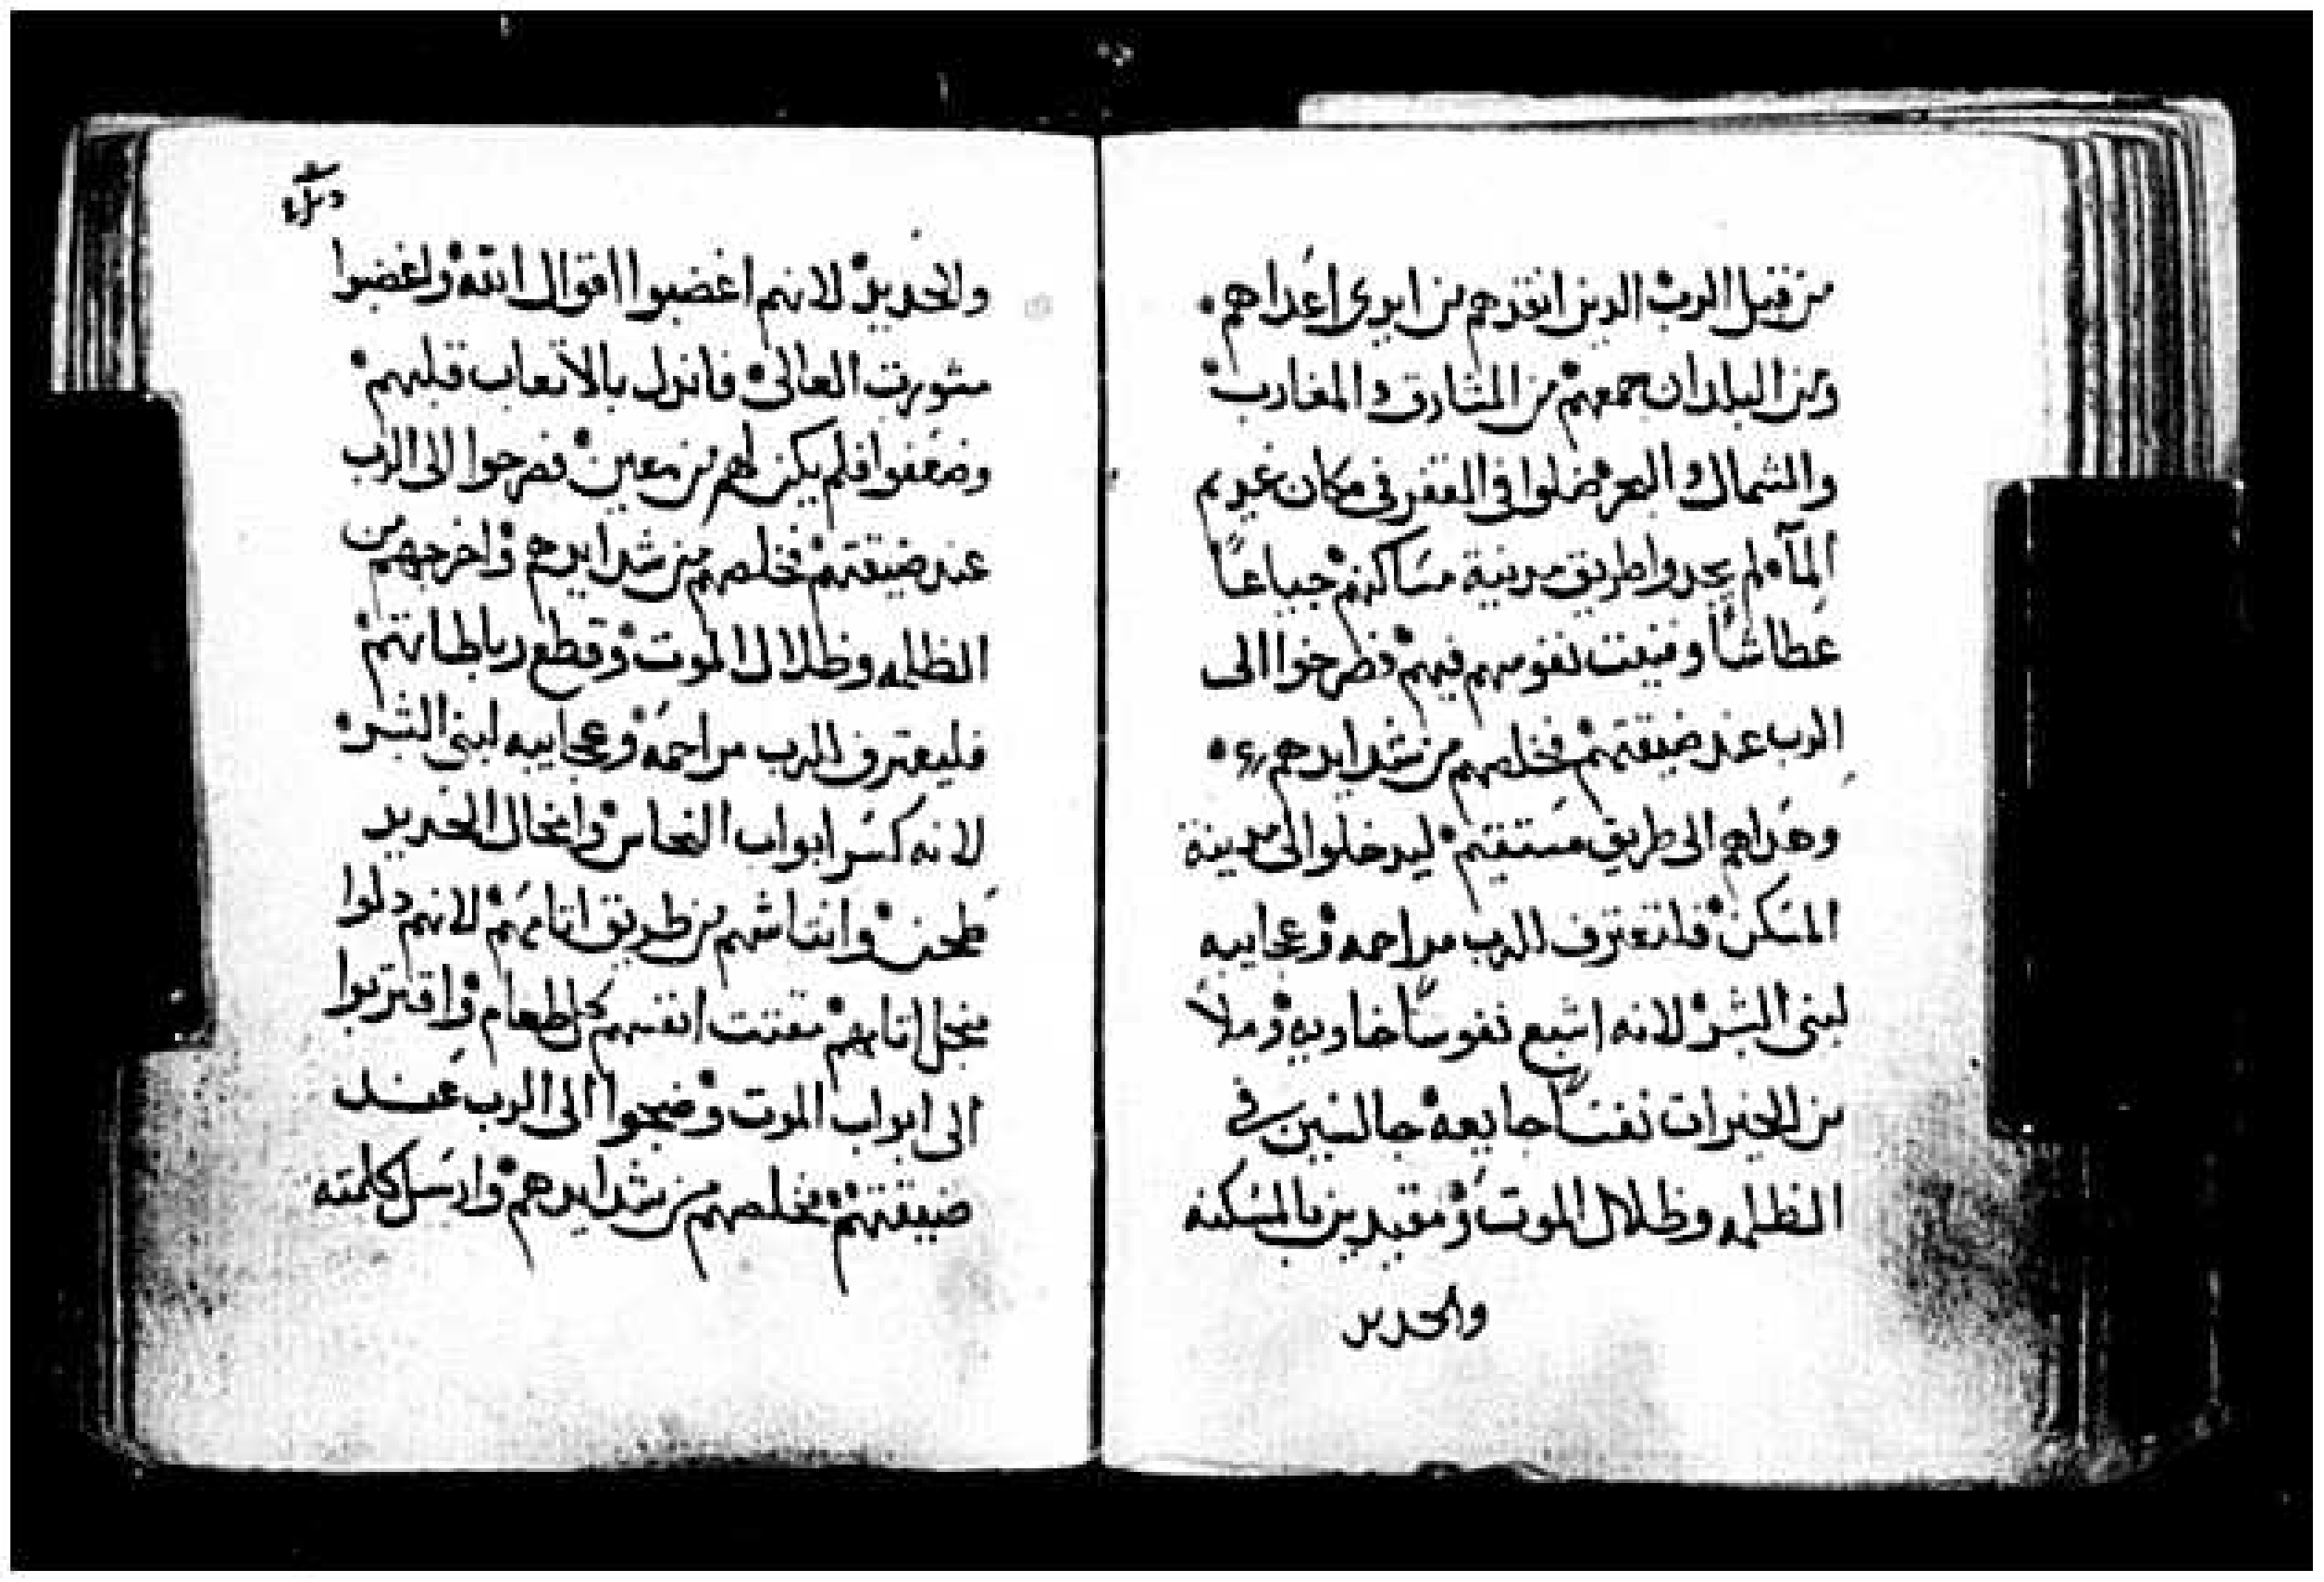 من قبل الرب الدين انقدهم من ايدي اعداهم
ومن البلدان جمعهم من المشارق والمغارب
والشمال والبحر ضلوا في القفر في مكان عديم
المآء لم يجدوا طريق مدينة مساكنهم جياعًا
عطاشًا وفنيت نفوسهم فيهم فصرخوا الى
الرب عند ضيقتهم فخلصهم من شدايدهم
وهداهم الى طريق مستقيم ليدخلوا الى مدينة
المسكن فلتعترف للرب مراحمه وعجايبه
لبني البشر لانه اشبع نفوسًا خاويه وملأ
من الخيرات نفسًا جايعه جالسين في
الظلمه وظلال الموت ومقيدين بالمسكنه
والحديد
والحديد لانهم اغضبوا اقوال الله واغضبوا
مشورت العالى فاندل بالاتعاب قلبهم
وضعفوا فلم يكن لهم من معين فصرخوا الى الرب
عند ضيقتهم فخلصهم من شدايدهم واخرجهم من
الظلمه وظلال الموت وقطع رباطاتهم
فليعترف للرب مراحمه وعجايبه لبني البشر
لانه كسر ابواب النحاس وامخال الحديد
طحن وانتاشهم من طريق اتامهم لانهم دلوا
منجل اتامهم مقتت انفسهم كل طعام واقتربوا
الى ابواب الموت وضجوا الى الرب عند
ضيقتهم فخلصهم من شدايدهم وارسل كلمته